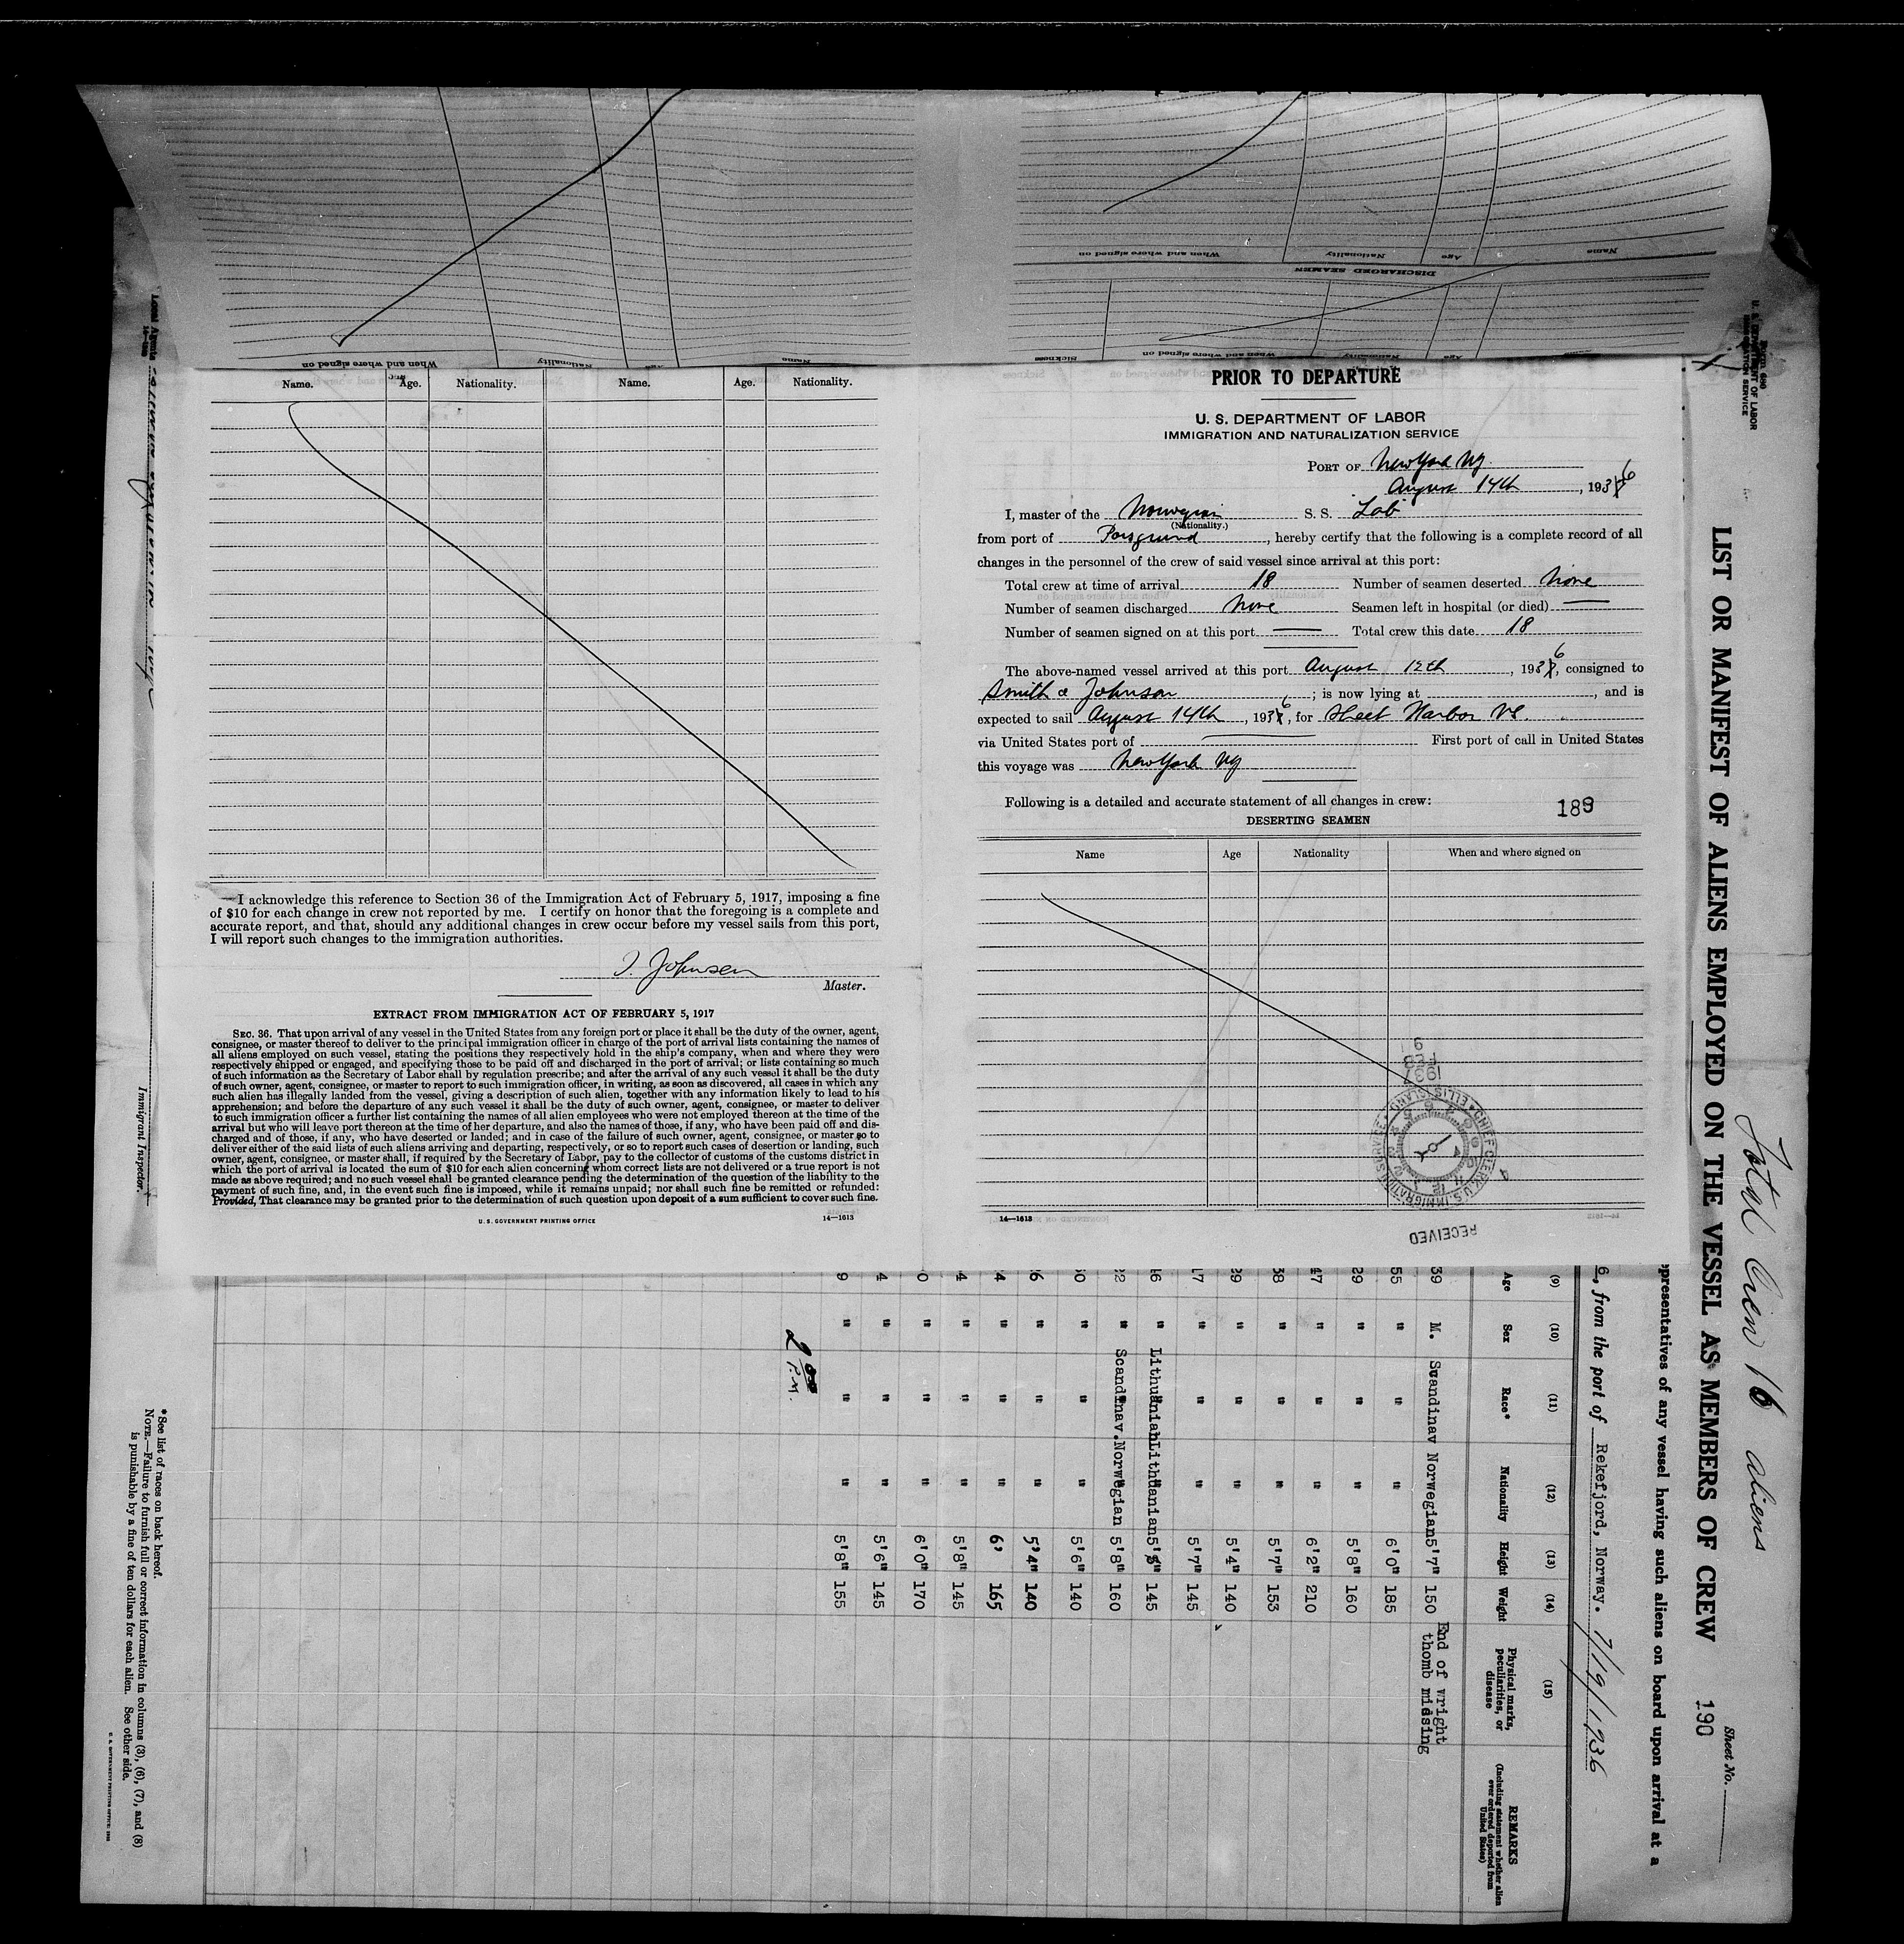 Name. Age. Nationality. Name. Age. Nationality.
I acknowledge this reference to Section 36 of the Immigration Act of February 5, 1917, imposing a fine
of $10 for each change in crew not reported by me. I certify on honor that the foregoing is a complete and
accurate report, and that, should any additional changes in crew occur before my vessel sails from this port,
I will report such changes to the immigration authorities.
J. Johnsen
Master.
EXTRACT FROM IMMIGRATION ACT OF FEBRUARY 5, 1917
SEC. 36. That upon arrival of any vessel in the United States from any foreign port or place it shall be the duty of the owner, agent,
consignee, or master thereof to deliver to the principal immigration officer in charge of the port of arrival lists containing the names of
all aliens employed on such vessel, stating the positions they respectively hold in the ship's company, when and where they were
respectively shipped or engaged, and specifying those to be paid off and discharged in the port of arrival; or lists containing so much
of such information as the Secretary of Labor shall by regulation prescribe; and after the arrival of any such vessel it shall be the duty
of such owner, agent, consignee, or master to report to such immigration officer, in writing, as soon as discovered, all cases in which any
such alien has illegally landed from the vessel, giving a description of such alien, together with any information likely to lead to his
apprehension; and before the departure of any such vessel it shall be the duty of such owner, agent, consignee, or master to deliver
to such immigration officer a further list containing the names of all alien employees who were not employed thereon at the time of the
arrival but who will leave port thereon at the time of her departure, and also the names of those, if any, who have been paid off and dis-
charged and of those, if any, who have deserted or landed; and in case of the failure of such owner, agent, consignee, or master so to
deliver either of the said lists of such aliens arriving and departing, respectively, or so to report such cases of desertion or landing, such
owner, agent, consignee, or master shall, if required by the Secretary of Labor, pay to the collector of customs of the customs district in
which the port of arrival is located the sum of $10 for each alien concerning whom correct lists are not delivered or a true report is not
made as above required; and no such vessel shall be granted clearance pending the determination of the question of the liability to the
payment of such fine, and, in the event such fine is imposed, while it remains unpaid; nor shall such fine be remitted or refunded:
Provided, That clearance may be granted prior to the determination of such question upon deposit of a sum sufficient to cover such fine.
U. S. GOVERNMENT PRINTING OFFICE 14—1613
PRIOR TO DEPARTURE
U. S. DEPARTMENT OF LABOR
IMMIGRATION AND NATURALIZATION SERVICE
PORT OF New York Ny
August 14th, 1936
I, master of the Norwegian S. S. Lab
(Nationality.)
from port of Porsgrund, hereby certify that the following is a complete record of all
changes in the personnel of the crew of said vessel since arrival at this port:
Total crew at time of arrival 18 Number of seamen deserted None
Number of seamen discharged None Seamen left in hospital (or died) —
Number of seamen signed on at this port — Total crew this date 18
The above-named vessel arrived at this port August 12th, 1936, consigned to
Smith & Johnson; is now lying at , and is
expected to sail August 14th, 1936, for Sheet Harbor NS.
via United States port of — First port of call in United States
this voyage was New York Ny
Following is a detailed and accurate statement of all changes in crew:
189
DESERTING SEAMEN
Name Age Nationality When and where signed on
1937 FEB 9
CHIEF CLERK, U.S. IMMIGRATION SERVICE ELLIS ISLAND
RECEIVED
14—1613
Name Age Nationality When and where signed on
DISCHARGED SEAMEN
Name Age Nationality When and where signed on Sickness
Name Age Nationality When and where signed on
U. S. DEPARTMENT OF LABOR
IMMIGRATION SERVICE
Total Crew 16 aliens
Sheet No.
LIST OR MANIFEST OF ALIENS EMPLOYED ON THE VESSEL AS MEMBERS OF CREW 190
representatives of any vessel having such aliens on board upon arrival at a
6, from the port of Rekefjord, Norway. 7/19/1936
(9) (10) (11) (12) (13) (14) (15)
Age Sex Race* Nationality Height Weight Physical marks, peculiarities, or disease REMARKS (Including statement whether alien ever ordered deported from United States)
39 M. Scandinav Norwegian 5'7" 150 End of wright thomb missing
55 " " " 6'0" 185
29 " " " 5'8" 160
47 " " " 6'2" 210
38 " " " 5'7" 153
29 " " " 5'4" 140
17 " " " 5'7" 145
16 " Lithuanian Lithuanian 145
22 " Scandinav. Norwegian 5'8" 160
0 " " " 5'6" 140
6 " " " 5'4" 140
4 " " " 6' 165
4 " " " 5'8" 145
0 " " " 6'0" 170
4 " " " 5'6" 145
9 " " " 5'8" 155
P.M.
Immigrant Inspector.
* See list of races on back hereof.
NOTE.—Failure to furnish full or correct information in columns (3), (6), (7), and (8)
is punishable by a fine of ten dollars for each alien. See other side.